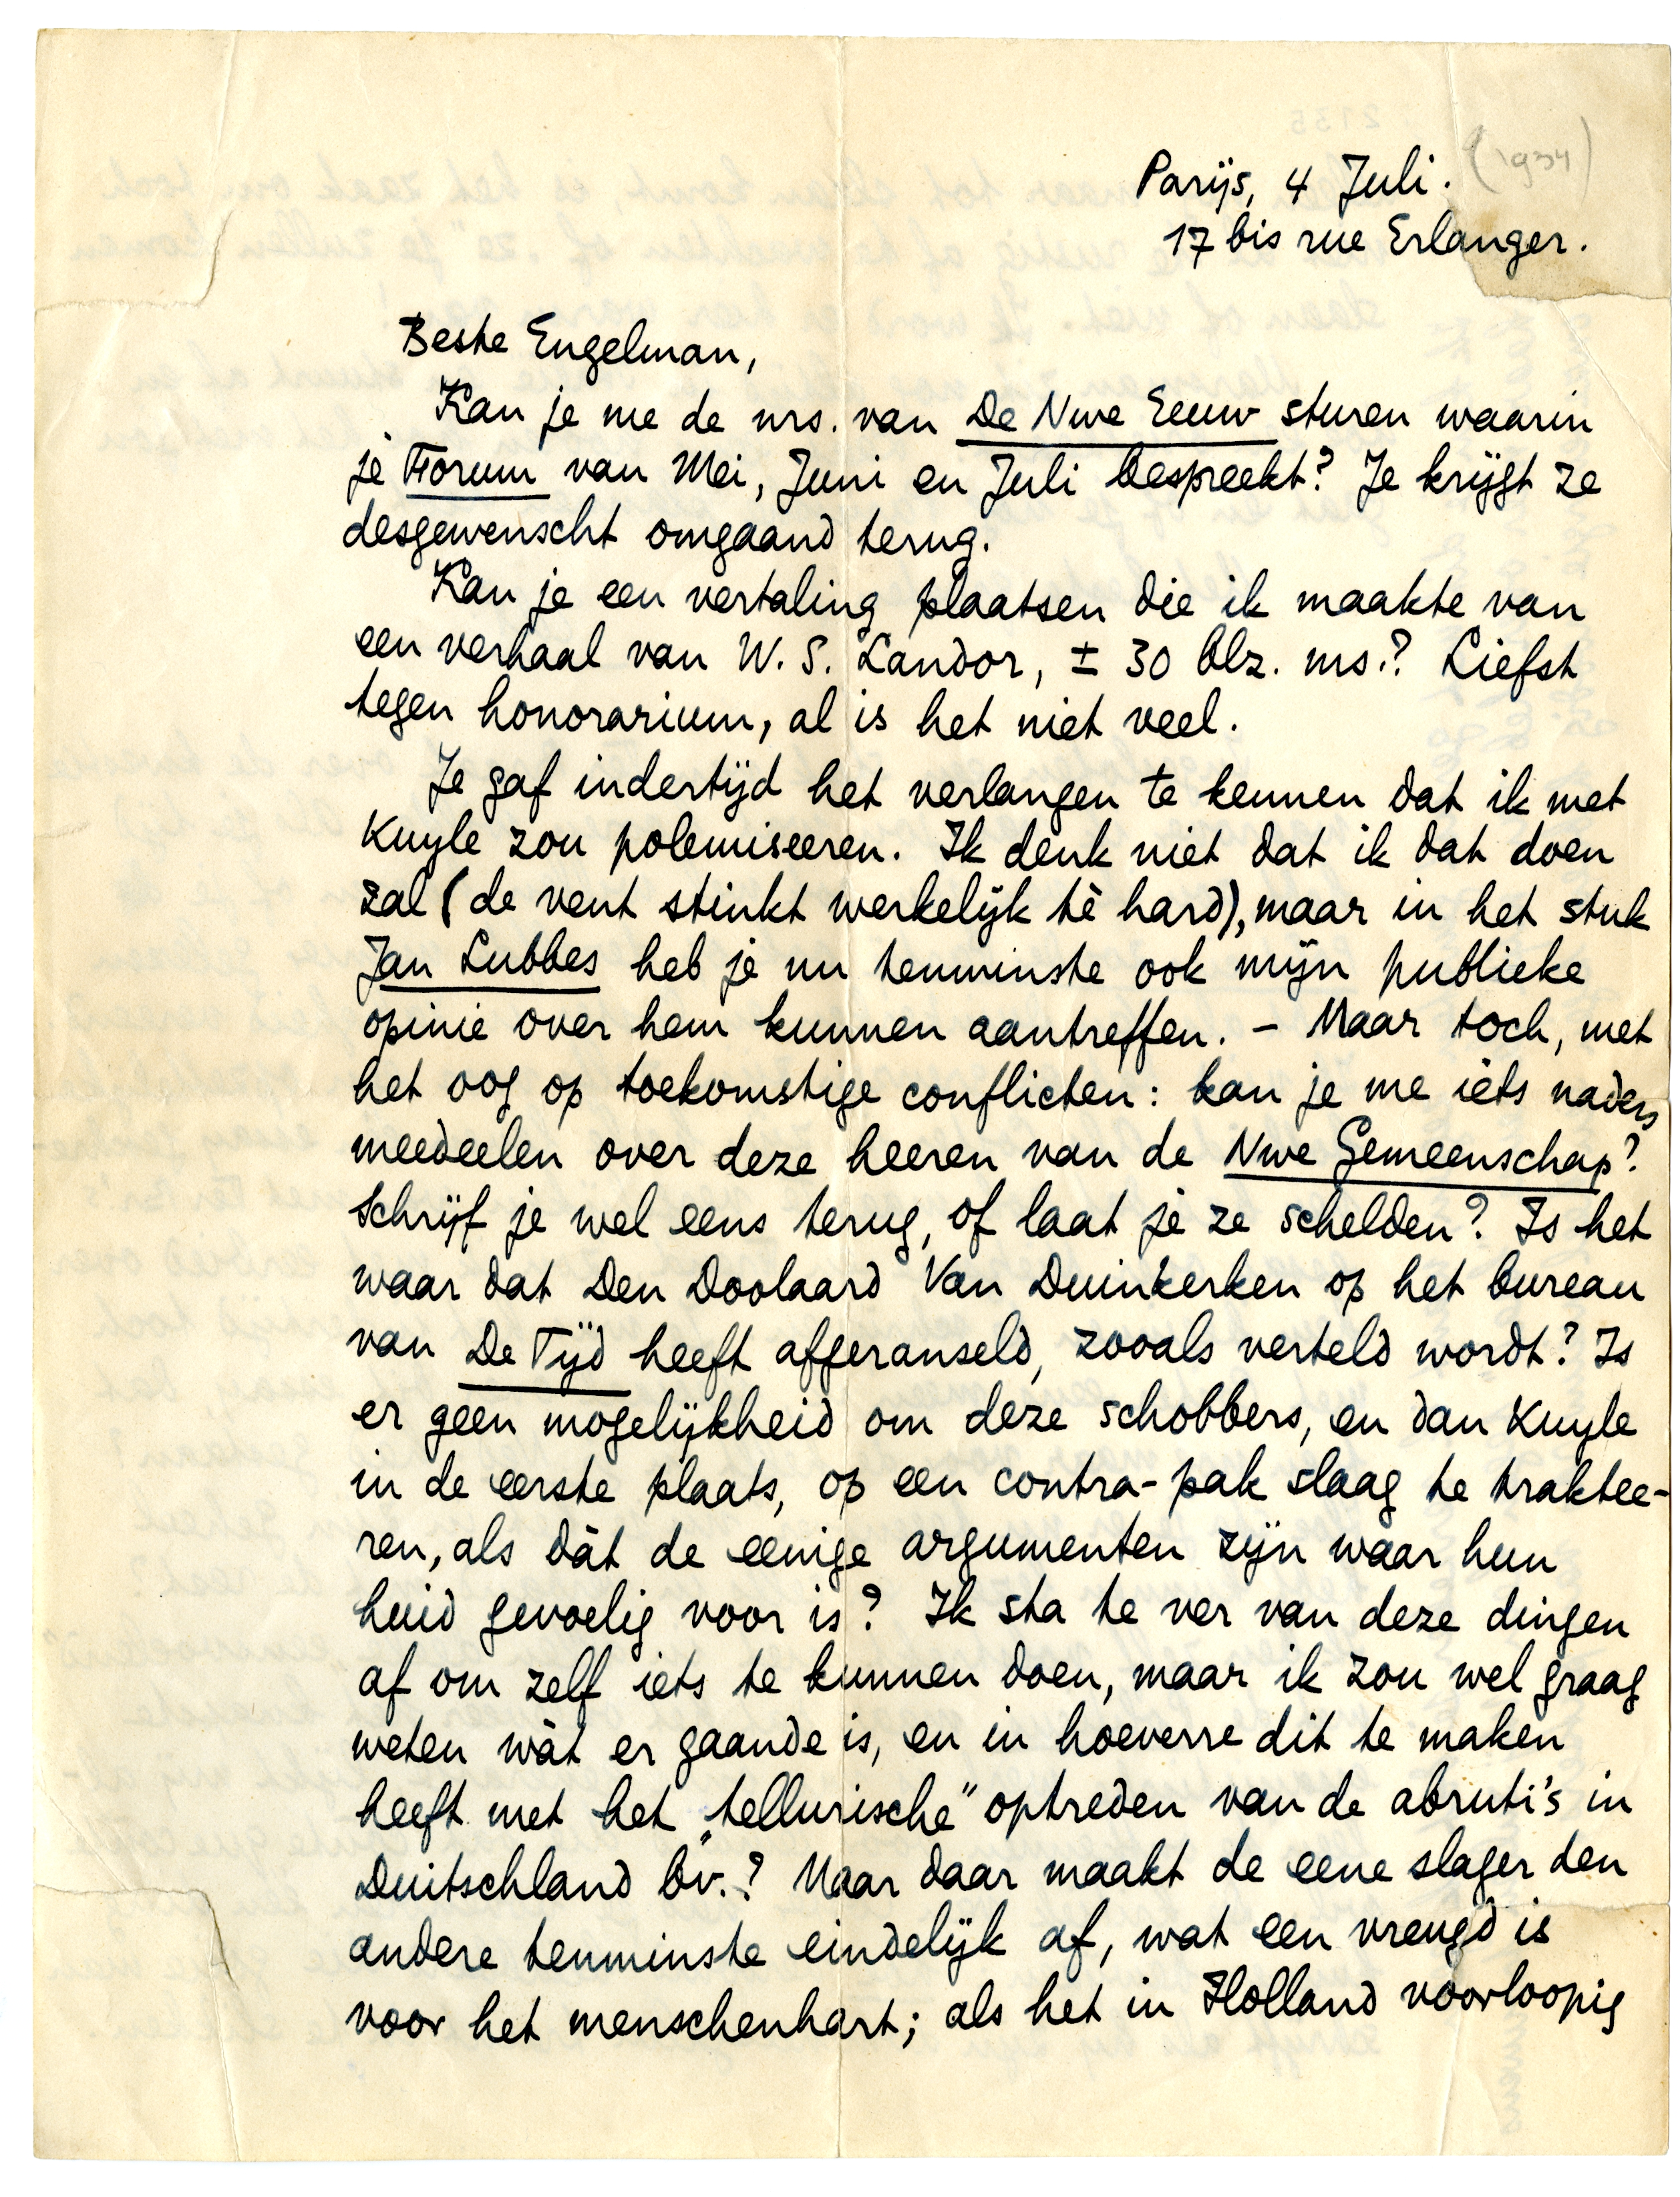 Parijs, 4 Juli. (1934)
17 bis rue Erlanger.
Beste Engelman,
Kan je me de nrs. van De Nwe Eeuw sturen waarin
je Forum van Mei, Juni en Juli bespreekt? Je krijgt ze
desgewenscht omgaand terug.
Kan je een vertaling plaatsen die ik maakte van
een verhaal van W. S. Landor, ± 30 blz. ms.? Liefst
tegen honorarium, al is het niet veel.
Je gaf indertijd het verlangen te kennen dat ik met
Kuyle zou polemiseeren. Ik denk niet dat ik dat doen
zal (de vent stinkt werkelijk tè hard), maar in het stuk
Jan Lubbes heb je nu tenminste ook mijn publieke
opinie over hem kunnen aantreffen. - Maar toch, met
het oog op toekomstige conflicten: kan je me iets naders
meedeelen over deze heeren van de Nwe Gemeenschap?
Schrijf je wel eens terug, of laat je ze schelden? Is het
waar dat Den Doolaard Van Duinkerken op het bureau
van De Tijd heeft afgeranseld, zooals verteld wordt? Is
er geen mogelijkheid om deze schobbers, en dan Kuyle
in de eerste plaats, op een contra-pak slaag te traktee-
ren, als dàt de eenige argumenten zijn waar hun
huid gevoelig voor is? Ik sta te ver van deze dingen
af om zelf iets te kunnen doen, maar ik zou wel graag
weten wàt er gaande is, en in hoeverre dit te maken
heeft met het „tellurische" optreden van de abruti's in
Duitschland bv.? Maar daar maakt de eene slager den
andere tenminste eindelijk af, wat een vreugd is
voor het menschenhart; als het in Holland voorloopig